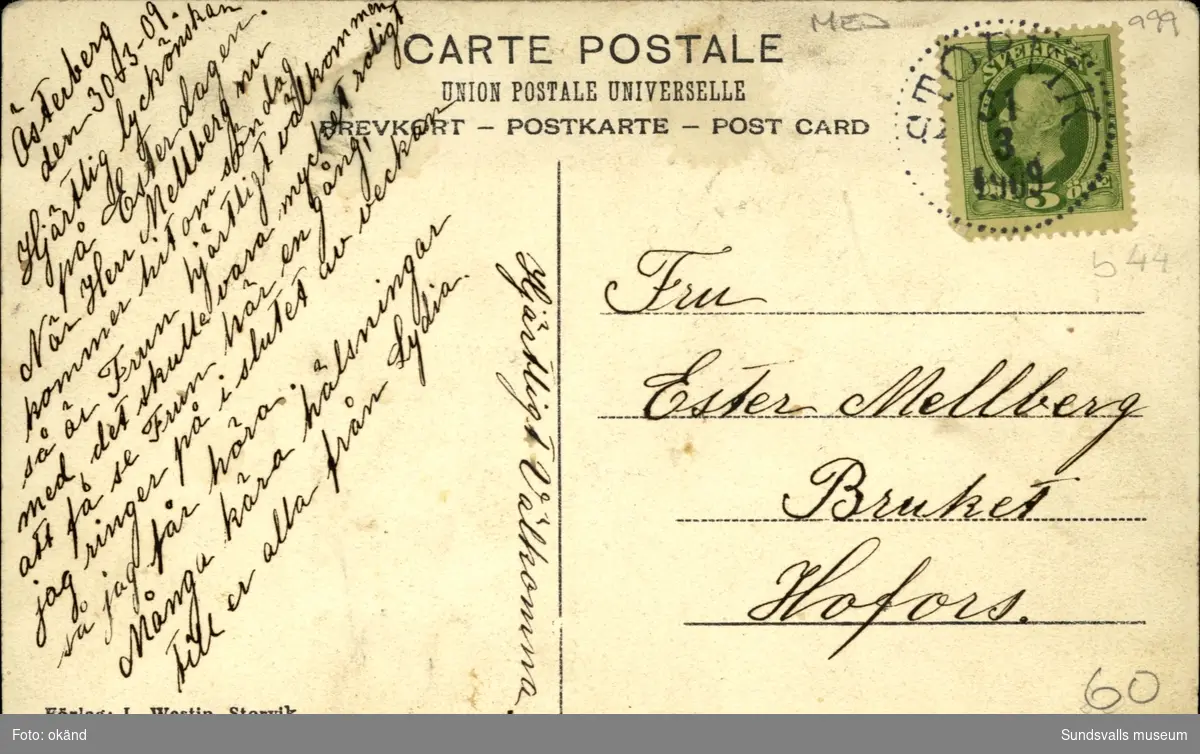 Österberg
den 30/3-09.
Hjärtlig lyckönskan
på Esterdagen.
När Herr Mellberg nu
kommer hit om söndag
så är Frun hjärtligt välkommen
med, det skulle vara mycket roligt
att få se Frun här en gång,
jag ringer på i slutet av veckan
så jag får höra.
Många kära hälsningar
till er alla från Lydia.
Hjärtligt Välkomna
CARTE POSTALE
UNION POSTALE UNIVERSELLE
BREVKORT – POSTKARTE – POST CARD
MED
999
STORVIK
31
3
1909
SVERIGE
5 ÖRE
b 44
Fru
Ester Mellberg
Bruket
Hofors.
60
Förlag: L. Westin, Storvik
Foto: okänd
Sundsvalls museum